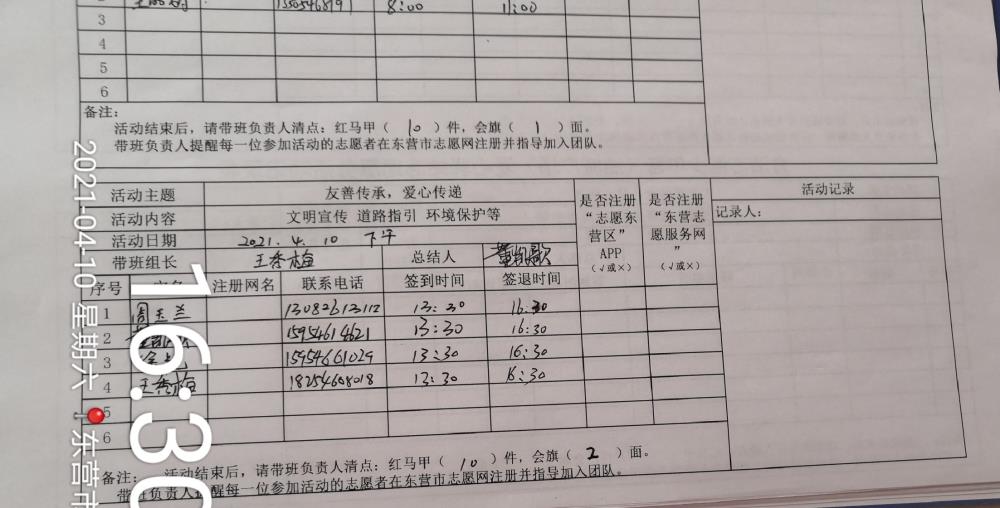 8:00 11:00
3
4
5
6
备注:
活动结束后，请带班负责人清点：红马甲（ 10 ）件，会旗（ 1 ）面。
带班负责人提醒每一位参加活动的志愿者在东营市志愿网注册并指导加入团队。
活动主题 友善传承，爱心传递
活动内容 文明宣传 道路指引 环境保护等
活动日期 2021.4.10 下午
带班组长 王秀梅 总结人
是否注册“志愿东营区”APP（√或×）
是否注册“东营志愿服务网”（√或×）
活动记录
记录人：
序号 注册网名 联系电话 签到时间 签退时间
1 13082613112 13:30 16:30
2 15954614621 13:30 16:30
3 15954661029 13:30 16:30
4 王秀梅 18254608018 13:30 16:30
5
6
备注: 活动结束后，请带班负责人清点：红马甲（ 10 ）件，会旗（ 2 ）面。
带班负责人提醒每一位参加活动的志愿者在东营市志愿网注册并指导加入团队。
16:30
2021-04-10 星期六
东营市